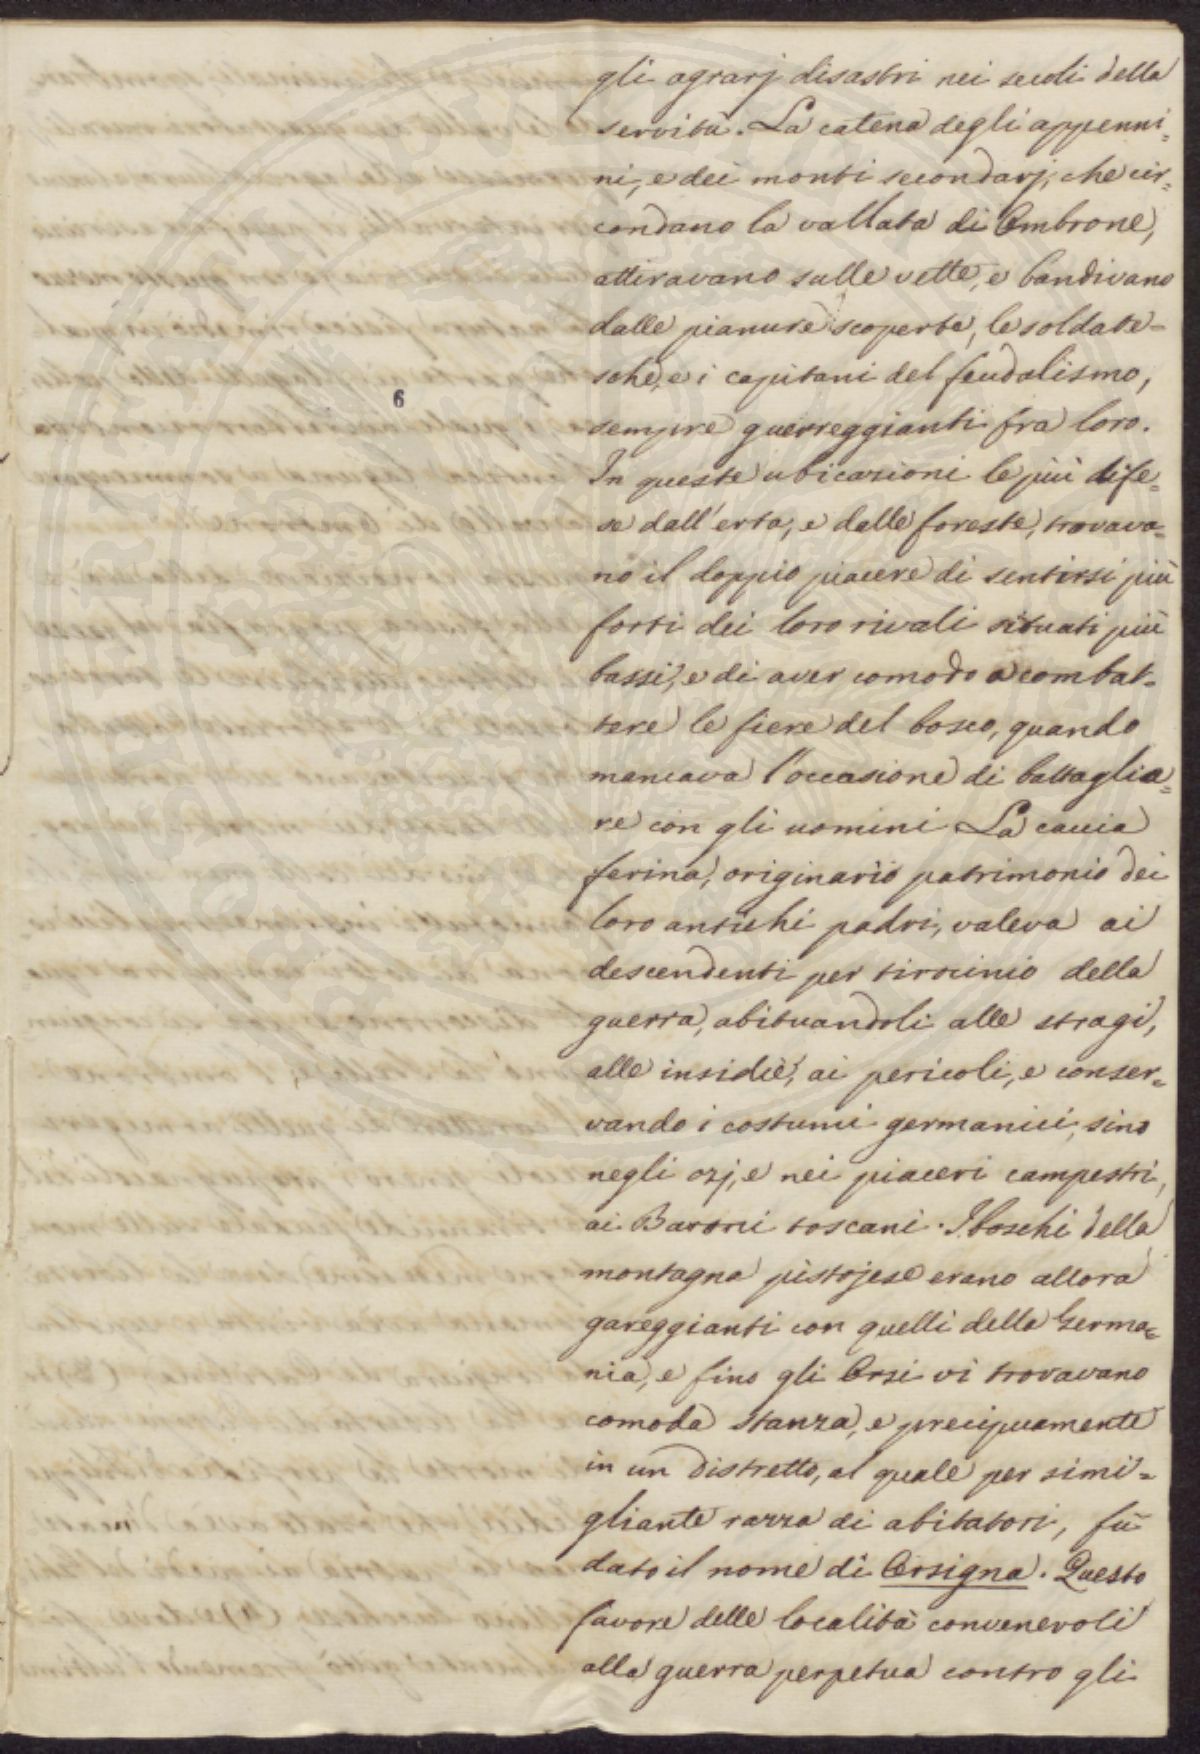 gli agrarj disastri nei secoli della
servitù. La catena degli appenni=
ni, e dei monti secondarj, che cir=
condano la vallata di Ombrone,
attiravano sulle vette, e bandivano
dalle pianure scoperte, le soldate=
sche, e i capitani del feudalismo,
6
sempre guerreggianti fra loro.
In queste ubicazioni le più dife=
se dall'erta, e dalle foreste, trovava=
no il doppio piacere di sentirsi più
forti dei loro rivali situati più
bassi, e di aver comodo a combat=
tere le fiere del bosco, quando
mancava l'occasione di battaglia=
re con gli uomini La caccia
ferina, originario patrimonio dei
loro antichi padri, valeva ai
descendenti per tirocinio della
guerra, abituandoli alle stragi,
alle insidie, ai pericoli, e conser=
vando i costumi germanici, sino
negli ozj, e nei piaceri campestri,
ai Baroni toscani. I boschi della
montagna pistojese erano allora
gareggianti con quelli della Germa=
nia, e fino gli Orsi vi trovavano
comoda stanza, e precipuamente
in un distretto, al quale per simi=
gliante razza di abitatori, fù
dato il nome di Orsigna. Questo
favore delle località convenevoli
alla guerra perpetua contro gli